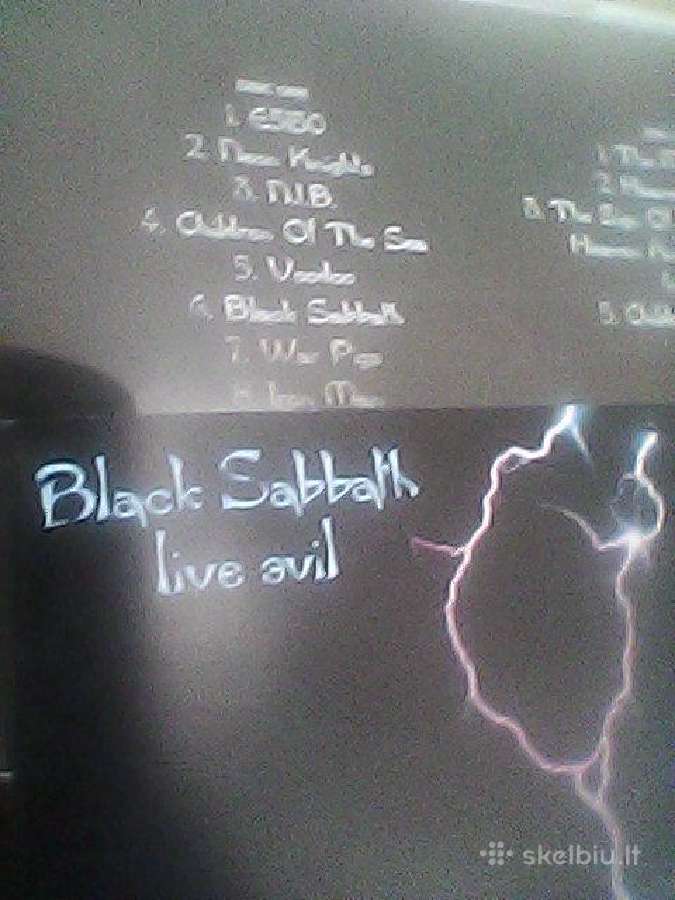 1. E5150
2. Neon Knights
3. N.I.B.
4. Children Of The Sea
5. Voodoo
6. Black Sabbath
7. War Pigs
8. Iron Man
1. The
3. The Sign Of
Heaven
5. Child
Black Sabbath
live evil
skelbiu.lt